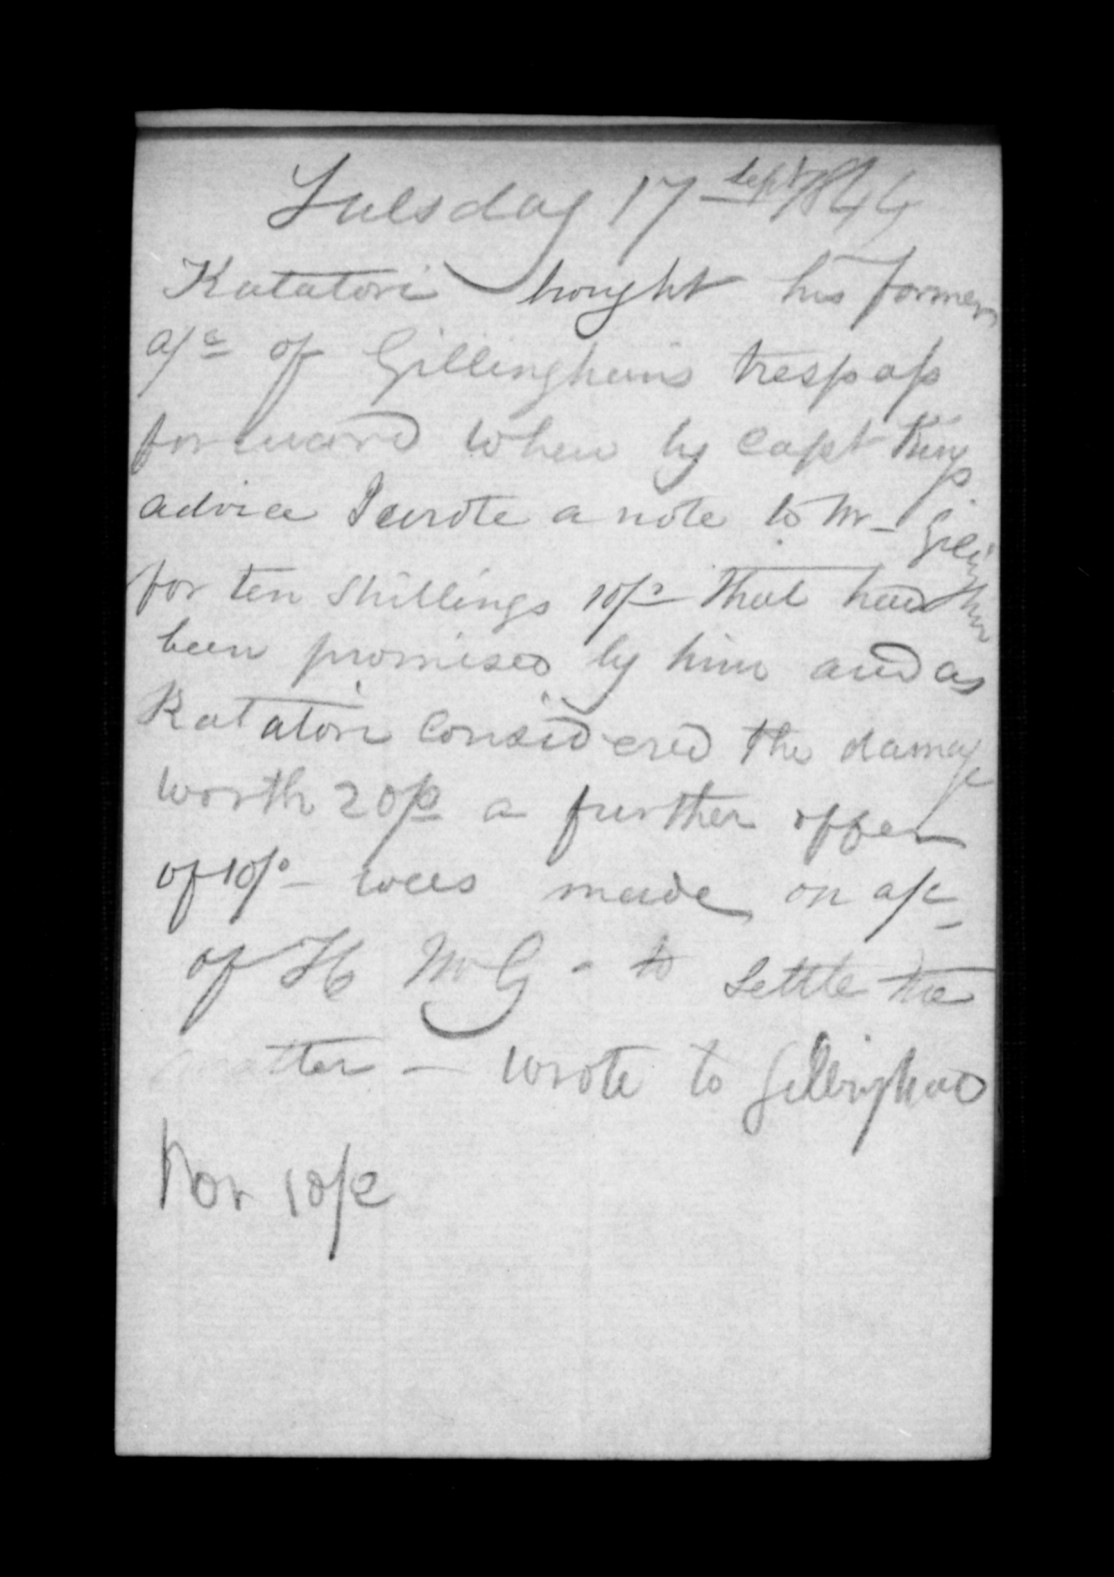 Tuesday 17 Sept 1844
Katatori bought his former
a/c of Gillinghams trespass
forward when by Capt Kings
advice I wrote a note to Mr Gillingham
for ten shillings 10/- that had
been promised by him and as
Katatori Considered the damage
worth 20/- a further offer
of 10/- was made on a/c
of H M G - to settle the
matter - wrote to Gillingham
for 10/-